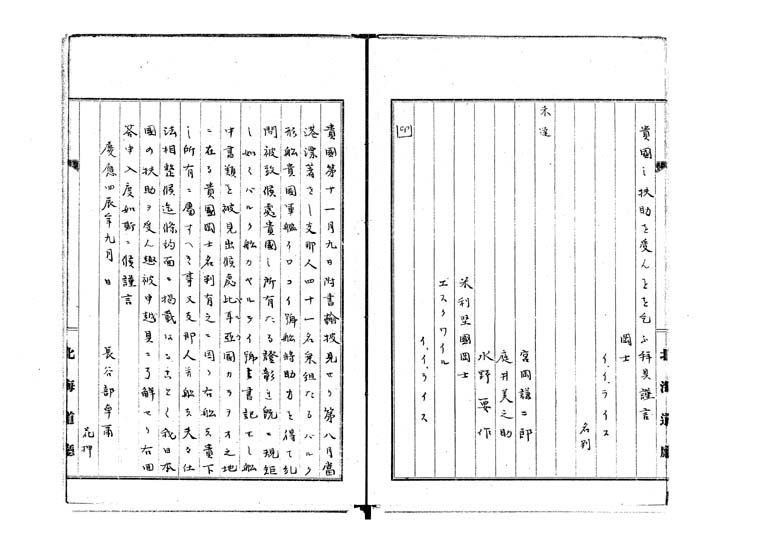 貴國之扶助を受んことを乞ふ拜具謹言
岡士
イ、イ、ライス
名判
米達
宮岡謹二郎
庭井美之助
水野要作
米利堅國岡士
エスクワイル
イ、イ、ライス
印
北海道廳
貴國第十一月九日附書翰披見せり第八月當
港漂着せし支那人四十一名乘組たるバルク
形船貴國軍艦イロコイ號船將助力を得て糺
問被致候處貴國之所有たる證彰も既に規矩
し如くバルク船カペルライ號書記せし船
中書類を被見出候處比年亞國カラヲオ之地
ニ在る貴國岡士名判有之ニ因り右船を貴下
之所有ニ屬すへき事又支那人并船を夫々仕
法相整候迄條約面ニ揭載ある如く我日本
國の扶助ヲ受ん趣被申越具ニ了解せり右回
答申入度如斯ニ候謹言
慶應四辰年九月 日
長谷部卓爾
花押
北海道廳